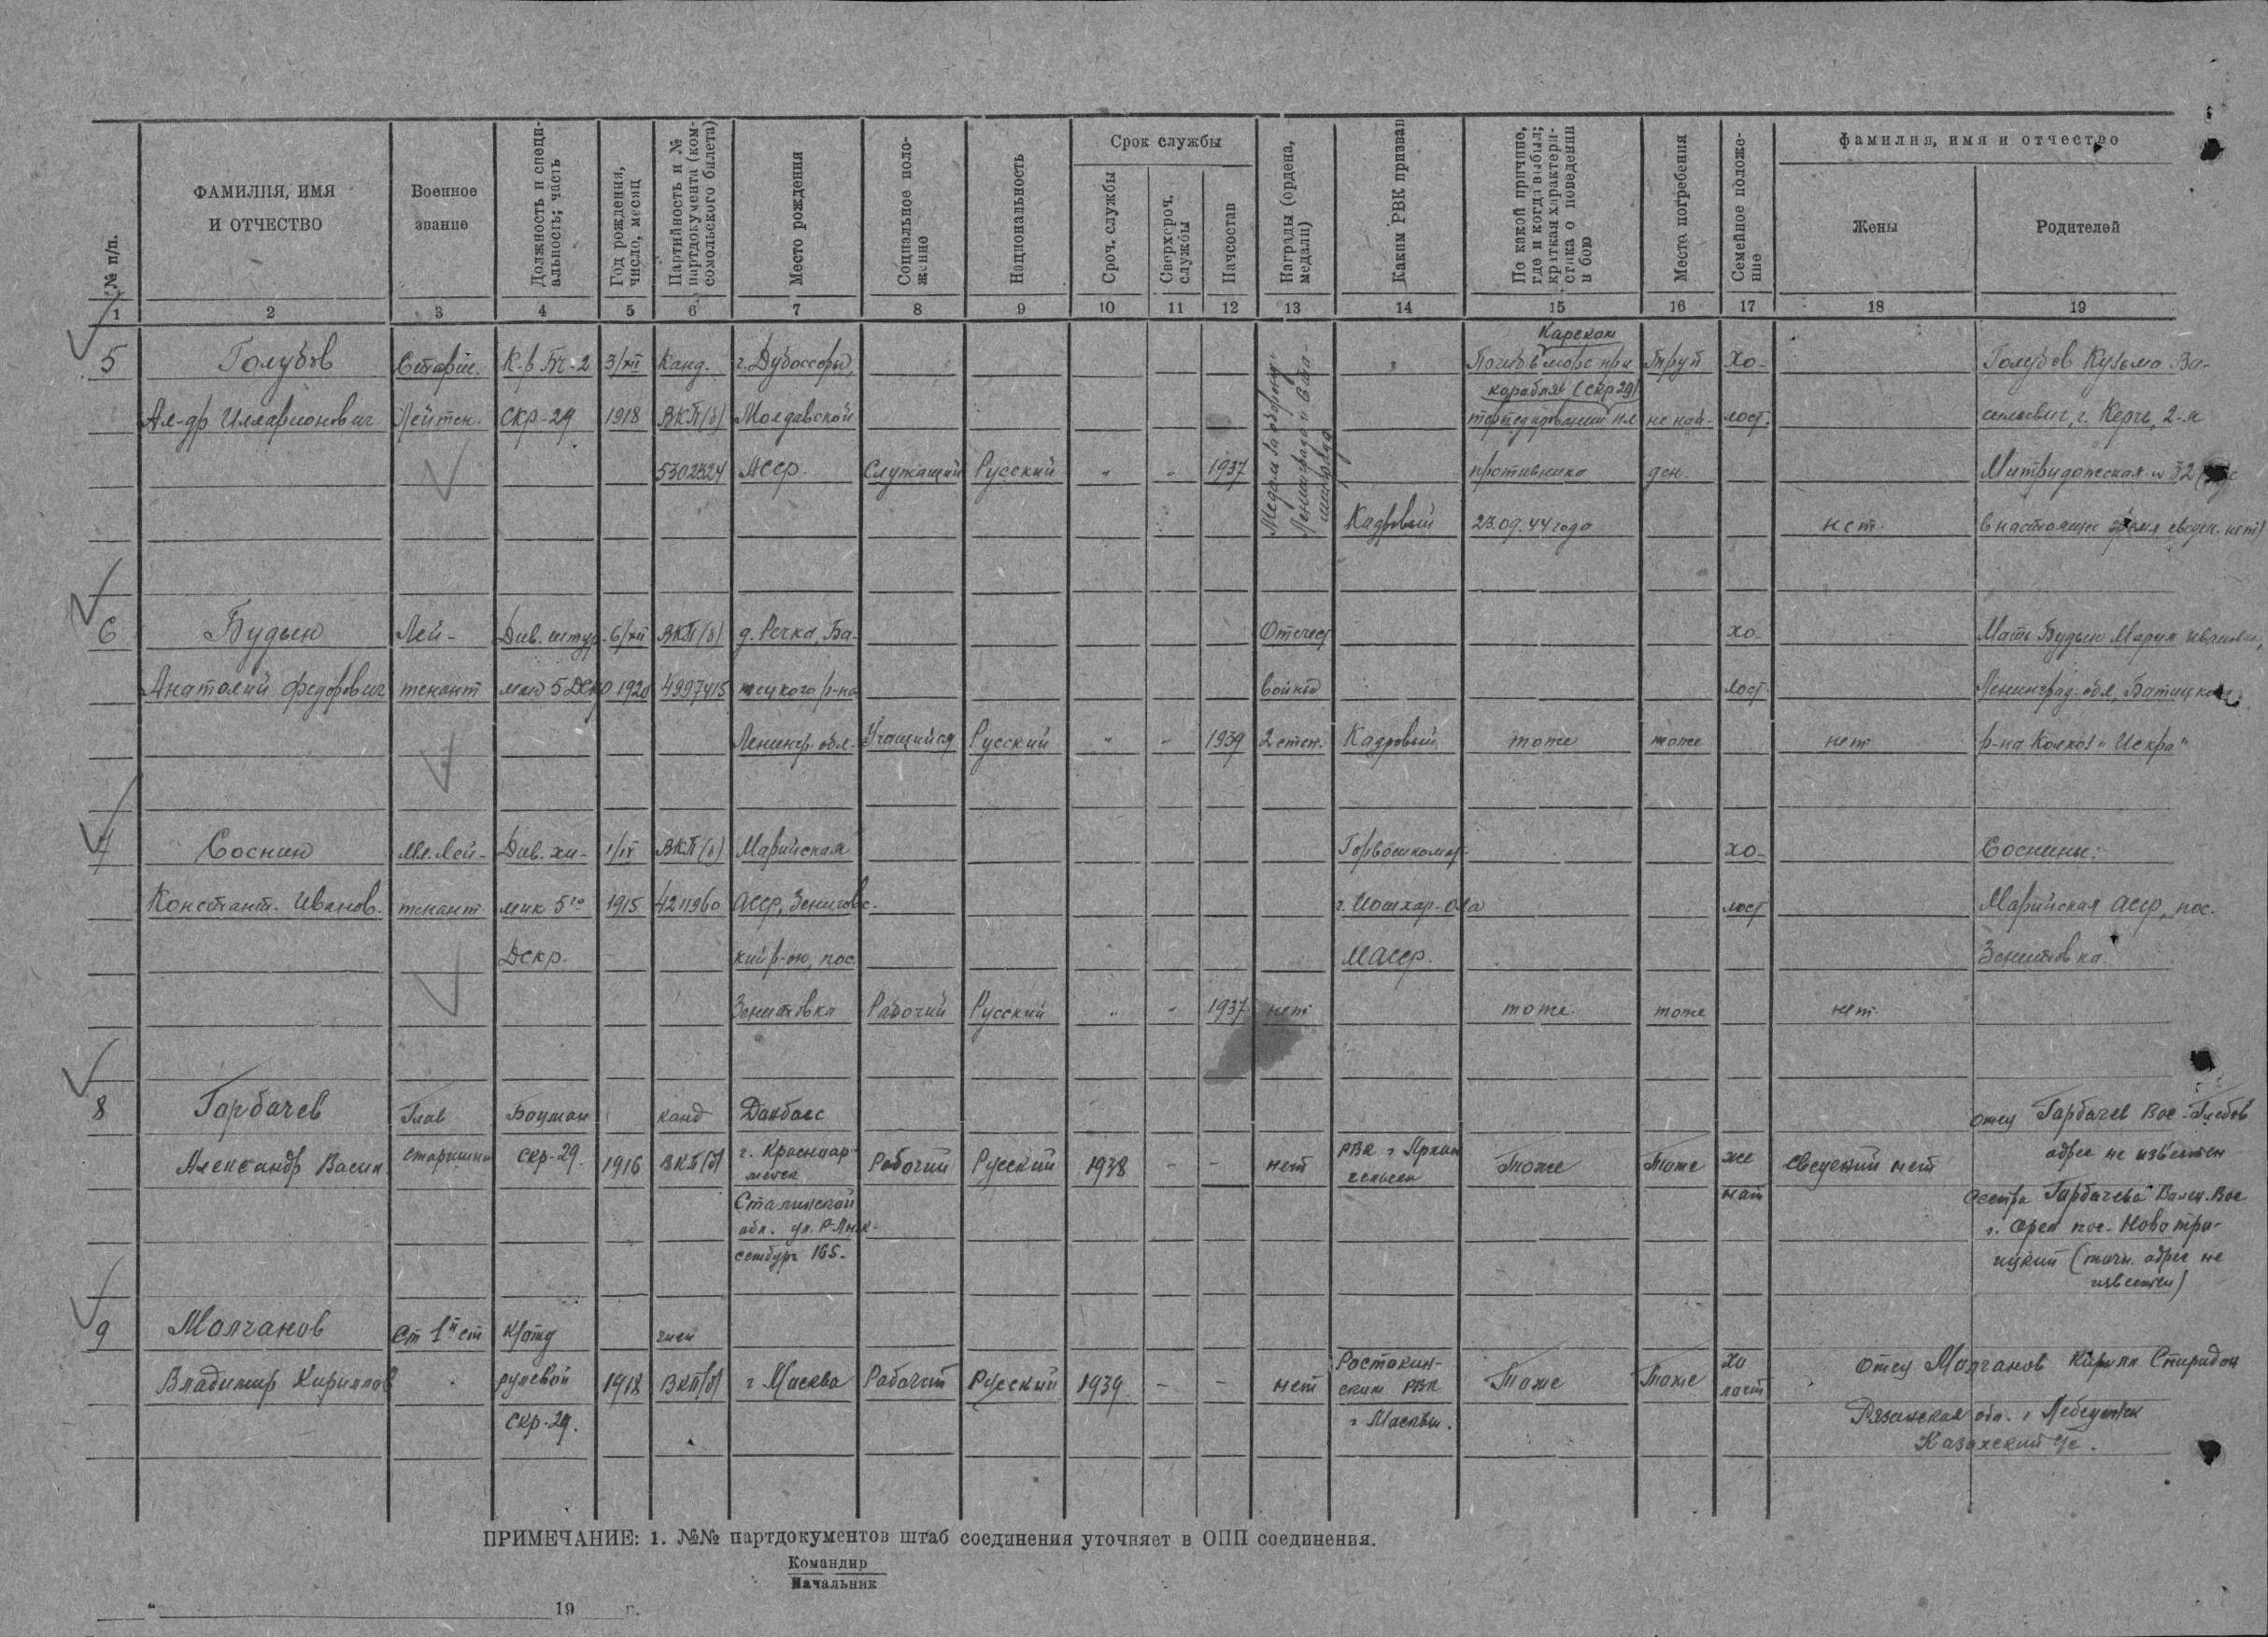 № п/п.
ФАМИЛИЯ, ИМЯ
И ОТЧЕСТВО
Военное
звание
Должность и специ-
альность; часть
Год рождения,
число, месяц
Партийность и №
партдокумента (ком-
сомольского билета)
Место рождения
Социальное поло-
жение
Национальность
Срок службы
Сроч. службы
Сверхсроч.
службы
Начсостав
Награды (ордена,
медали)
Каким РВК призван
По какой причине,
где и когда выбыл;
краткая характери-
стика о поведении
в бою
Место погребения
Семейное положе-
ние
фамилия, имя и отчество
Жены
Родителей
1 2 3 4 5 6 7 8 9 10 11 12 13 14 15 16 17 18 19
5
Голубов
Ал-др Илларионович
Старш.
Лейтен.
К-р БЧ-2
СКР-29
3/XII
1918
Канд.
ВКП(б)
5302324
г. Дубоссоры,
Молдавской
АССР.
Служащий
Русский
" " 1937
Медаль "За оборону
Ленинграда"
Кадровый
Карском
Погиб в море при
корабля (СКР 29)
торпедировании пл
противника
23.09.44 года
Труп
не най-
ден.
Хо-
лост.
нет.
Голубов Кузьма Ва-
сильевич, г. Керчь, 2-я
Митридатская № 32
в настоящее время сведен. нет)
6
Будын
Анатолий Федорович
Лей-
тенант
Див. штур-
ман 5 ДСКР
6/XII
1920
ВКП(б)
4997415
д. Речка, Ба-
тецкого р-на
Ленингр. обл.
Учащийся
Русский
" " 1939
Отечес
войны
2 степ.
Кадровый
тоже
тоже
хо-
лост.
нет
Мать Будын Мария Ивановн,
Ленинград. обл, Батецкого
р-на Колхоз "Искра"
7
Соснин
Констант. Иванов.
Мл. Лей-
тенант.
Див. хи-
мик 5го
ДСКР.
1/IX
1915
ВКП(б)
4211960
Марийская
АССР, Звениговс.
кий р-он, пос.
Рабочий
Русский
" " 1937
нет
Горвоенкомат.
г. Йошкар-Ола
МАССР.
тоже
тоже
хо-
лост
нет.
Соснины:
Марийская АССР, пос.
8
Горбачев
Александр Васил
Глав
старшина
Боцман
СКР-29.
1916
канд
ВКП(б)
Донбасс
г. Красноар-
мейск
Сталинской
обл. ул. Р-Люк-
сембург 165.
Рабочий
Русский
1938 - -
нет
РВК г Архан
гельска
Тоже
Тоже
же
нат
сведений нет
отец Горбачев Вас. Глебов
адрес не известен
сестра Горбачева Вален. Вас
г. Орел пос. Новотро-
ицкий (точн. адрес не
известен)
9
Молчанов
Владимир Кириллов
Ст 1й ст
К/отд
рулевой
СКР-29.
1918
член
ВКП(б)
г Москва
Рабочий
Русский
1939 - -
нет
Ростокин-
ским РВК
г Москвы.
Тоже
Тоже
хо
лост
Отец Молчанов Кирилл Спиридон
Рязанская обл. г Лебедянск
ПРИМЕЧАНИЕ: 1. №№ партдокументов штаб соединения уточняет в ОПП соединения.
Командир
Начальник
" 19 г.